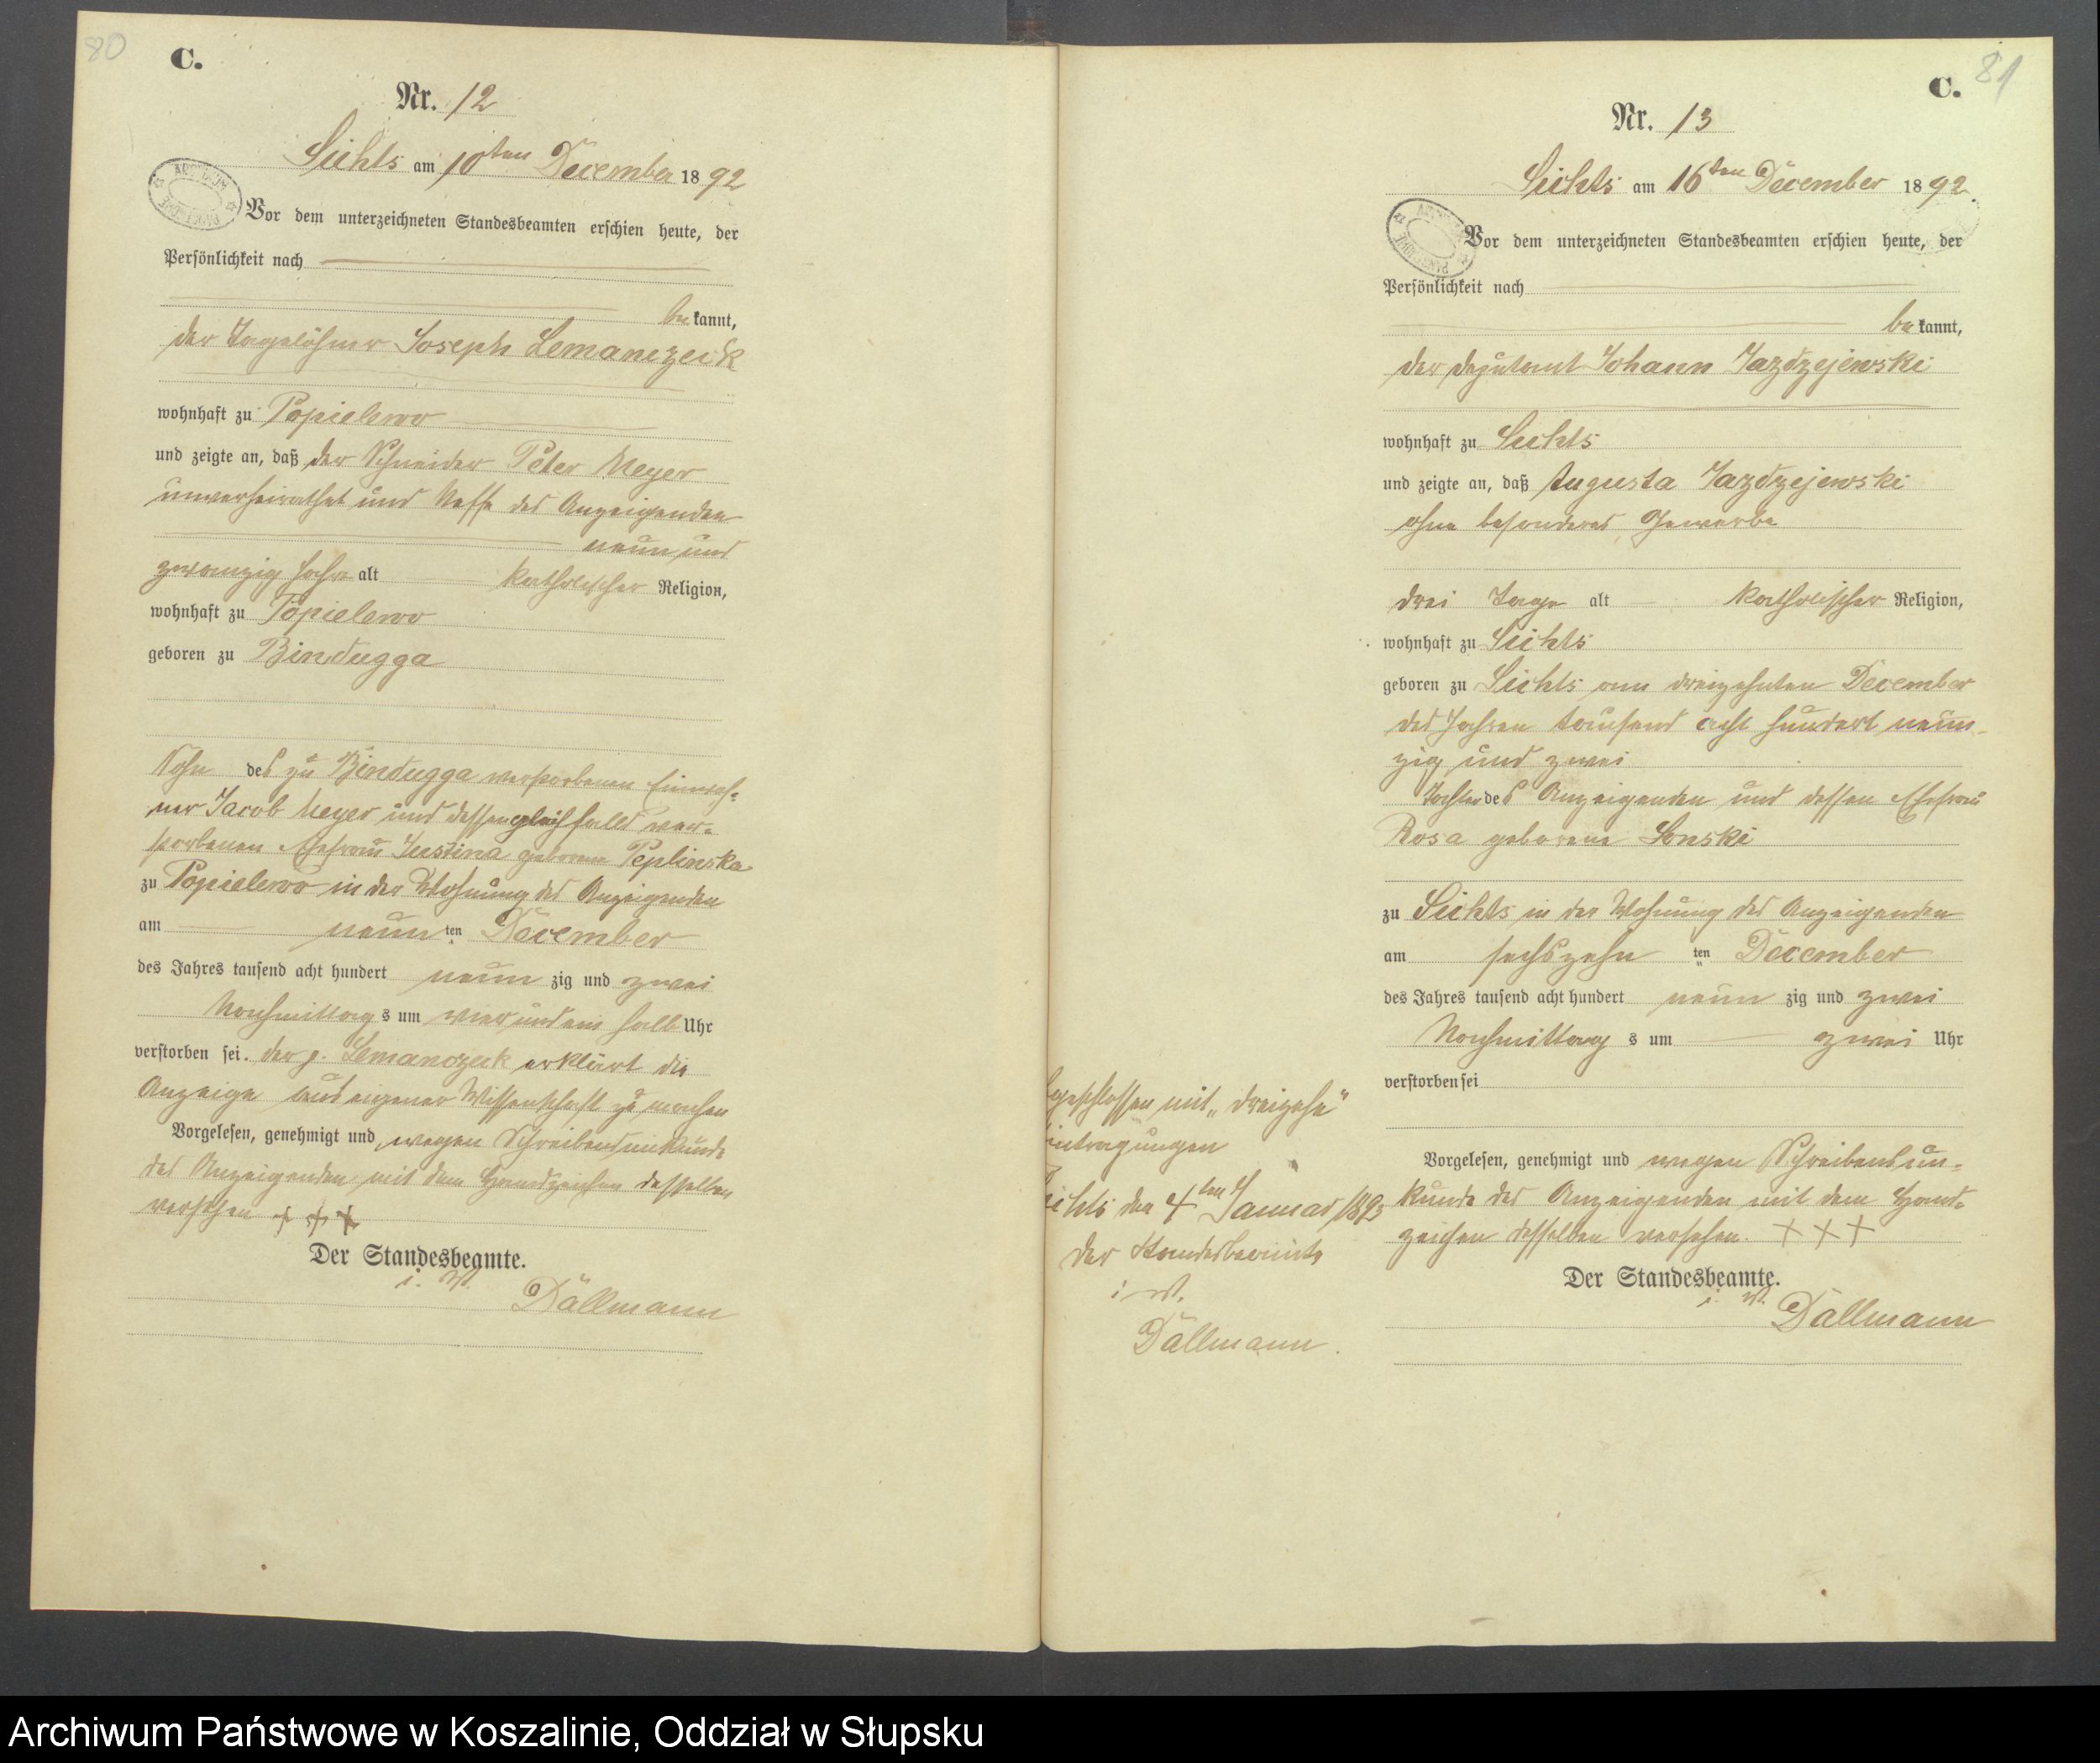 80
C.
Nr. 12
Sichts am 10ten December 1892
Vor dem unterzeichneten Standesbeamten erschien heute, der
Persönlichkeit nach
bekannt,
der Tagelöhner Joseph Lemanczeck
wohnhaft zu Popielewo
und zeigte an, daß der Schneider Peter Meyer
unverheirathet und Neffe des Anzeigenden
neun und
zwanzig Jahre alt katholischer Religion,
wohnhaft zu Popielewo
geboren zu Bindugga
Sohn des zu Bindugga verstorbenen Einwoh=
ner Jacob Meyer und dessen gleichfalls ver=
storbenen Ehefrau Justina geborene Peplinska
zu Popielewo in der Wohnung des Anzeigenden
am neunten December
des Jahres tausend acht hundert neunzig und zwei
Nachmittags um vier und ein halb Uhr
verstorben sei. der p. Lemanczeck erklärt die
Anzeige aus eigener Wissenschaft zu machen
Vorgelesen, genehmigt und wegen Schreibensunkunde
des Anzeigenden mit dem Handzeichen desselben
versehen + + +
Der Standesbeamte.
i. V.
Dallmann
81
C.
Nr. 13
Sichts am 16ten December 1892.
Vor dem unterzeichneten Standesbeamten erschien heute, der
Persönlichkeit nach
bekannt,
der Deputant Johann Jazdzejewski
wohnhaft zu Sichts
und zeigte an, daß Augusta Jazdzejewski
ohne besonderes Gewerbe
drei Tage alt katholischer Religion,
wohnhaft zu Sichts
geboren zu Sichts am dreizehnten December
des Jahres tausend acht hundert neun=
zig und zwei
Tochter des Anzeigenden und dessen Ehefrau
Rosa geborene Lonski
zu Sichts in der Wohnung des Anzeigenden
am sechszehnten December
des Jahres tausend acht hundert neunzig und zwei
Nachmittags um zwei Uhr
verstorben sei
Vorgelesen, genehmigt und wegen Schreibensun=
kunde des Anzeigenden mit dem Hand=
zeichen desselben versehen. + + +
Der Standesbeamte.
i. V. Dallmann
geschlossen mit „dreizehn"
intragungen
ichts den 4ten Januar 1893
Der Standesbeamte
i. V.
Dallmann.
Archiwum Państwowe w Koszalinie, Oddział w Słupsku